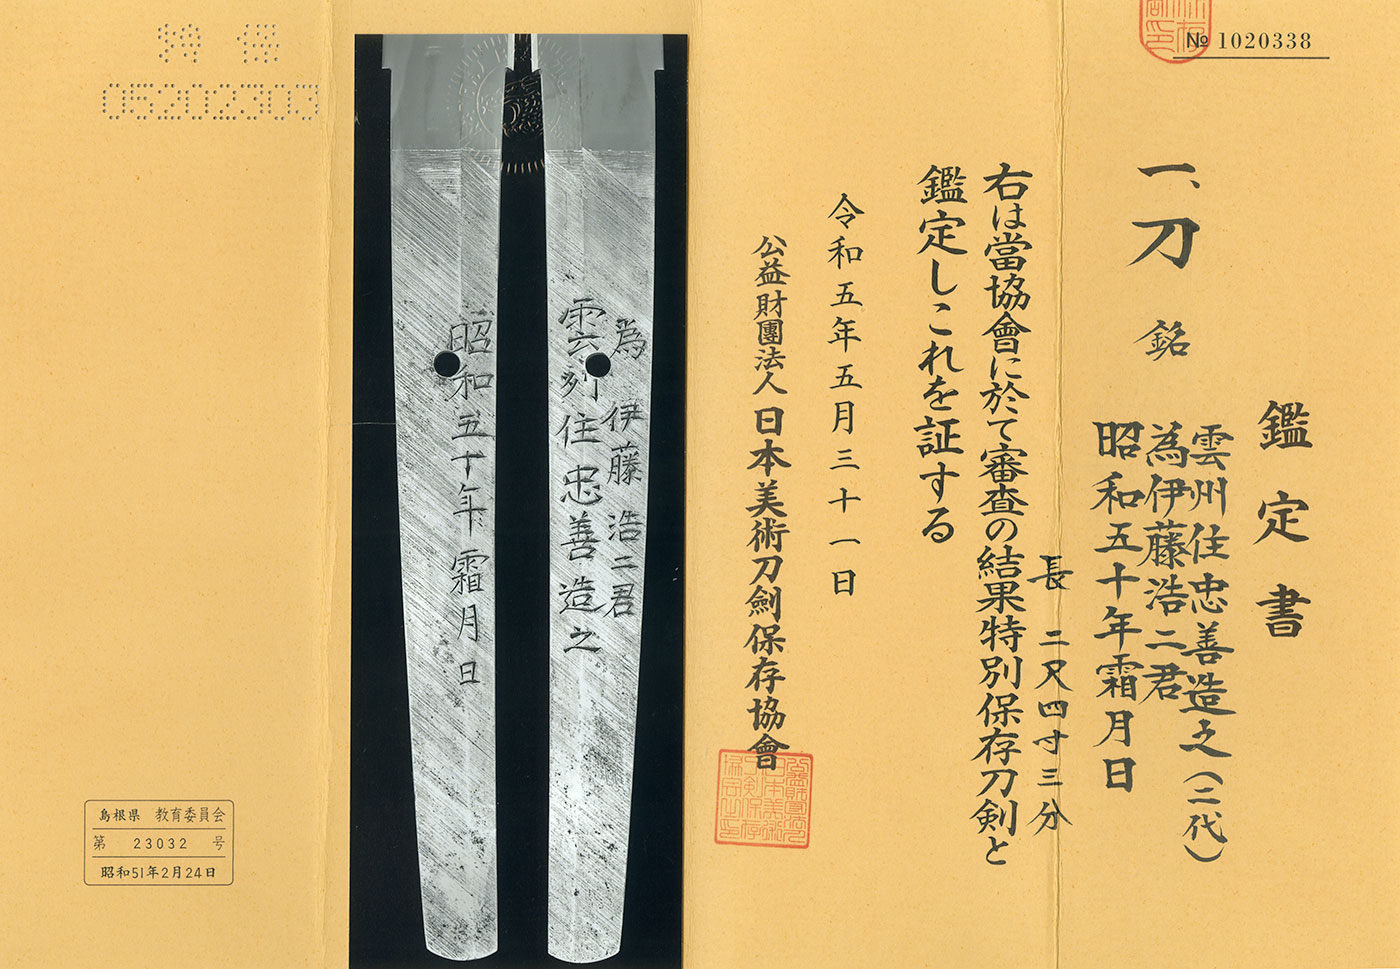 № 1020338
鑑定書
一、刀 銘
雲州住忠善造之(二代)
為伊藤浩二君
昭和五十年霜月日
長 二尺四寸三分
右は當協會に於て審査の結果特別保存刀剣と
鑑定しこれを証する
令和五年五月三十一日
公益財團法人 日本美術刀劍保存協會
為 伊藤浩二君
雲州住忠善造之
昭和五十年霜月日
特 保
05202303
島根県 教育委員会
第 23032 号
昭和51年2月24日